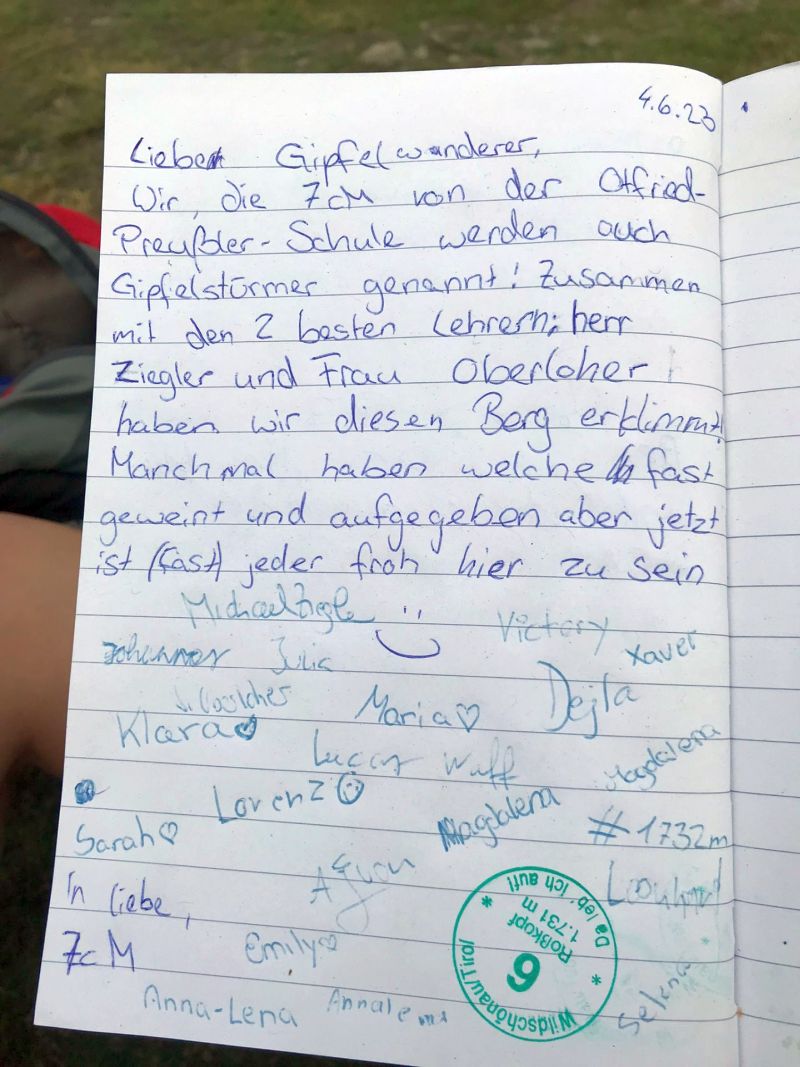 4.6.23
Lieber Gipfelwanderer,
Wir, die 7cM von der Otfried-
Preußler-Schule werden auch
Gipfelstürmer genannt! Zusammen
mit den 2 besten Lehrern; herr
Ziegler und Frau Oberloher
haben wir diesen Berg erklimmt!
Manchmal haben welche fast
geweint und aufgegeben aber jetzt
ist (fast) jeder froh hier zu sein
Michael
Victory
Xaver
Johannes
Julia
Maria♡
Dejla
Klara♡
Luccas Wulff
Magdalena
Lorenz☺
Magdalena
#1732m
Sarah♡
Leonhard
In liebe,
7cM
Emily♡
Selena
Anna-Lena
Wildschönau/Tirol
6
Roßkopf
1.731 m
Da leb' ich auf!